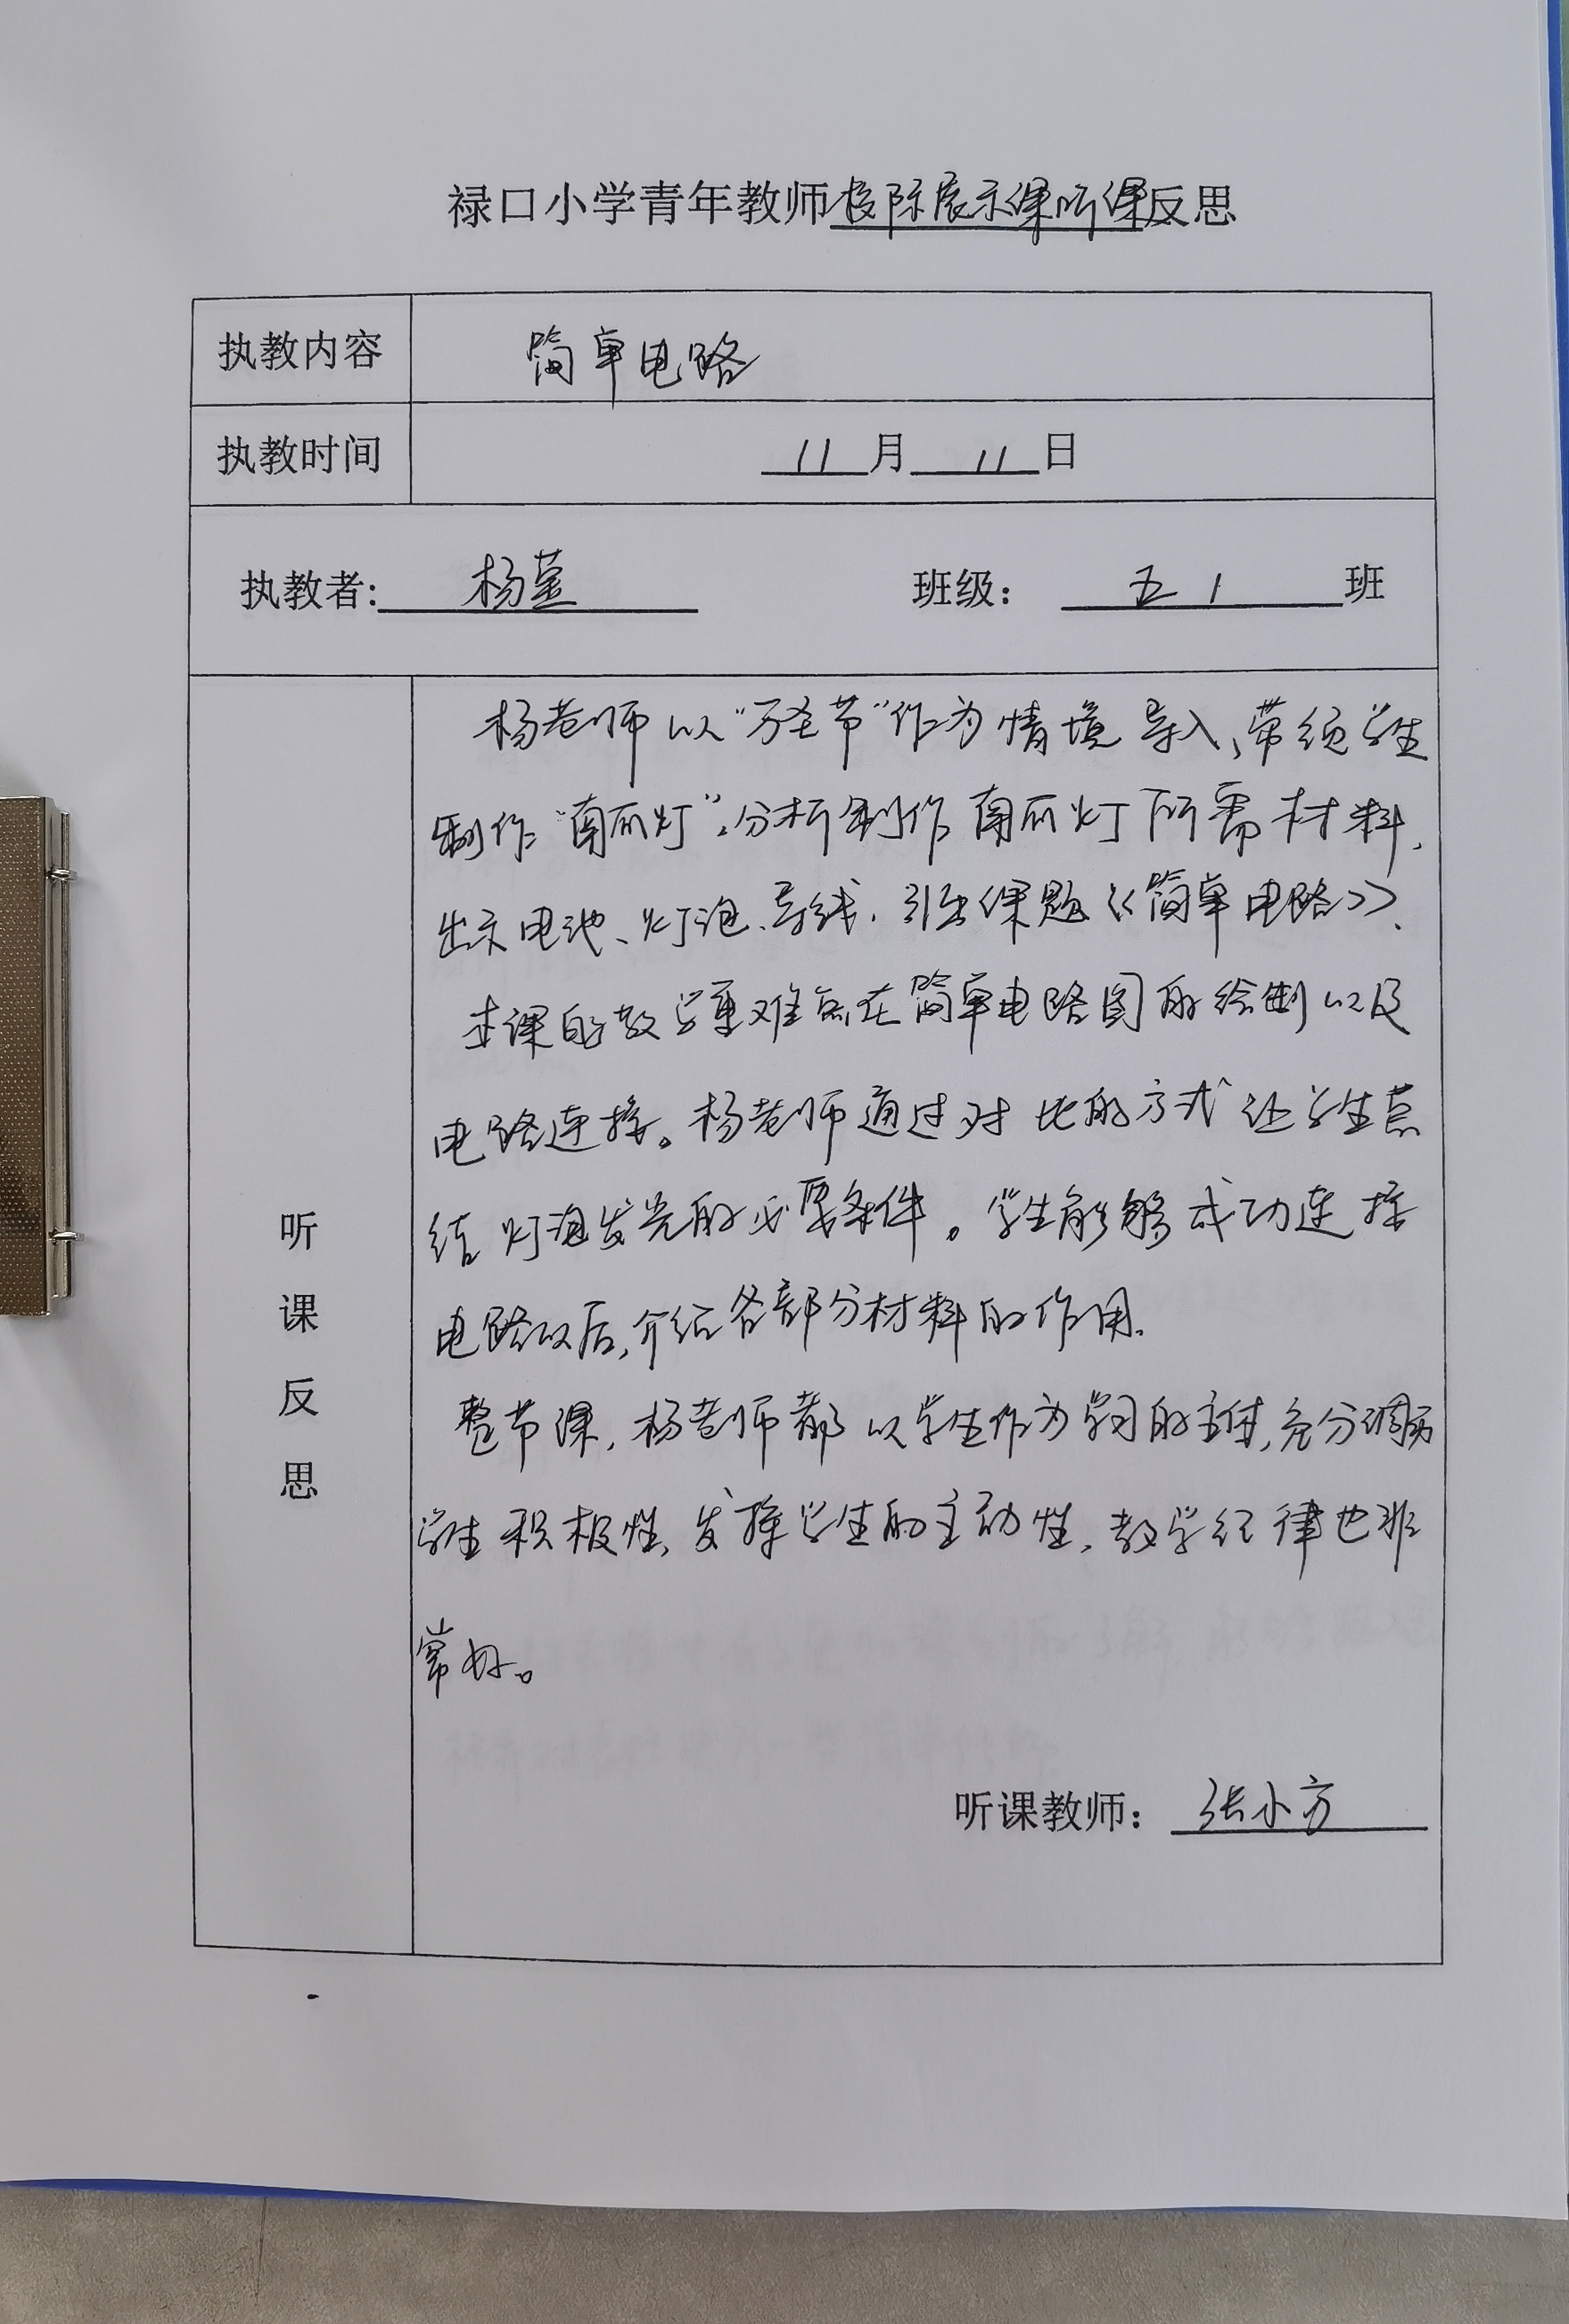 禄口小学青年教师校际展示课听课反思
执教内容 简单电路
执教时间 11月11日
执教者: 杨莹 班级： 五1班
听课反思
杨老师以“万圣节”作为情境导入，带领学生
制作“南瓜灯”。分析制作南瓜灯所需材料，
出示电池、灯泡、导线，引出课题《简单电路》、
本课的教学重难点在简单电路图的绘制以及
电路连接。杨老师通过对比的方式让学生总
结灯泡发光的必要条件。学生能够成功连接
电路以后，介绍各部分材料的作用。
整节课，杨老师都以学生作为学习的主体，充分调动
学生积极性，发挥学生的主动性，教学纪律也非
常好。
听课教师： 张小方